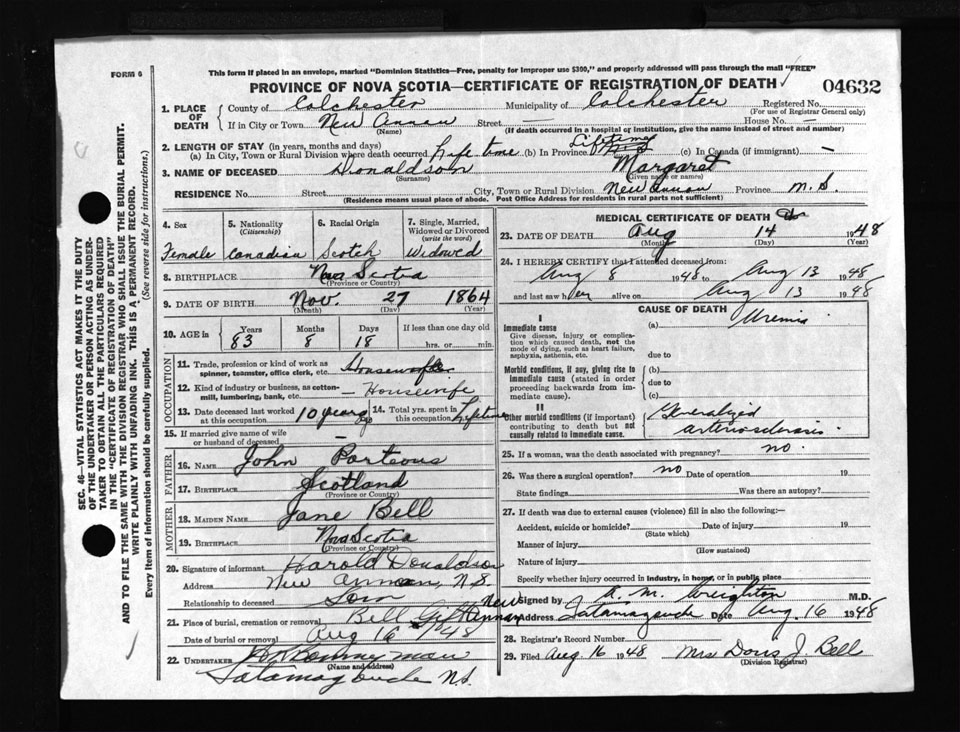 FORM 6
This form if placed in an envelope, marked "Dominion Statistics—Free, penalty for improper use $300," and properly addressed will pass through the mail "FREE"
PROVINCE OF NOVA SCOTIA—CERTIFICATE OF REGISTRATION OF DEATH
04632
1. PLACE OF DEATH { County of Colchester Municipality of Colchester Registered No.
(For use of Registrar General only)
If in City or Town New Annan Street — House No. —
(Name) (If death occurred in a hospital or institution, give the name instead of street and number)
2. LENGTH OF STAY (in years, months and days)
(a) In City, Town or Rural Division where death occurred Life time (b) In Province Lifetime (c) In Canada (if immigrant) —
3. NAME OF DECEASED Donaldson Margaret
(Surname) (Given name or names)
RESIDENCE No. Street City, Town or Rural Division New Annan Province N.S.
(Residence means usual place of abode. Post Office Address for residents in rural parts not sufficient)
4. Sex Female
5. Nationality (Citizenship) Canadian
6. Racial Origin Scotch
7. Single, Married, Widowed or Divorced (write the word) Widowed
8. BIRTHPLACE Nova Scotia
(Province or Country)
9. DATE OF BIRTH Nov. 27 1864
(Month) (Day) (Year)
10. AGE in { Years 83 Months 8 Days 18 If less than one day old hrs. or min.
OCCUPATION
11. Trade, profession or kind of work as spinner, teamster, office clerk, etc. Housewife
12. Kind of industry or business, as cotton-mill, lumbering, bank, etc. Housewife
13. Date deceased last worked at this occupation 10 years ago
14. Total yrs. spent in this occupation Lifetime
15. If married give name of wife or husband of deceased —
FATHER
16. NAME John Porteous
17. BIRTHPLACE Scotland
(Province or Country)
MOTHER
18. MAIDEN NAME Jane Bell
19. BIRTHPLACE Nova Scotia
(Province or Country)
20. Signature of informant Harold Donaldson
Address New Annan, N.S.
Relationship to deceased Son
21. Place of burial, cremation or removal Bell New Annan
Date of burial or removal Aug 16 48
22. UNDERTAKER Bonnyman
(Name and address)
Tatamagouche N.S.
MEDICAL CERTIFICATE OF DEATH
23. DATE OF DEATH Aug 14 1948
(Month) (Day) (Year)
24. I HEREBY CERTIFY that I attended deceased from:
Aug 8 1948 to Aug 13 1948
and last saw her alive on Aug 13 1948
CAUSE OF DEATH
I
Immediate cause (a) Uremia
Give disease, injury or complication which caused death, not the mode of dying, such as heart failure, asphyxia, asthenia, etc.
due to
Morbid conditions, if any, giving rise to immediate cause (stated in order proceeding backwards from immediate cause).
(b)
due to
(c)
II
Other morbid conditions (if important) contributing to death but not causally related to immediate cause.
Generalized arteriosclerosis
25. If a woman, was the death associated with pregnancy? no.
26. Was there a surgical operation? no Date of operation 19
State findings Was there an autopsy?
27. If death was due to external causes (violence) fill in also the following:—
Accident, suicide or homicide? Date of injury 19
(State which)
Manner of injury
(How sustained)
Nature of injury
Specify whether injury occurred in industry, in home, or in public place
Signed by A. M. Creighton M.D.
Address Tatamagouche Date Aug. 16 1948
28. Registrar's Record Number
29. Filed Aug. 16 1948 Mrs Doris J. Bell
(Division Registrar)
SEC. 46—VITAL STATISTICS ACT MAKES IT THE DUTY
OF THE UNDERTAKER OR PERSON ACTING AS UNDER-
TAKER TO OBTAIN ALL THE PARTICULARS REQUIRED
IN THE "CERTIFICATE OF REGISTRATION OF DEATH"
AND TO FILE THE SAME WITH THE DIVISION REGISTRAR WHO SHALL ISSUE THE BURIAL PERMIT.
WRITE PLAINLY WITH UNFADING INK. THIS IS A PERMANENT RECORD.
Every item of information should be carefully supplied. (See reverse side for instructions.)